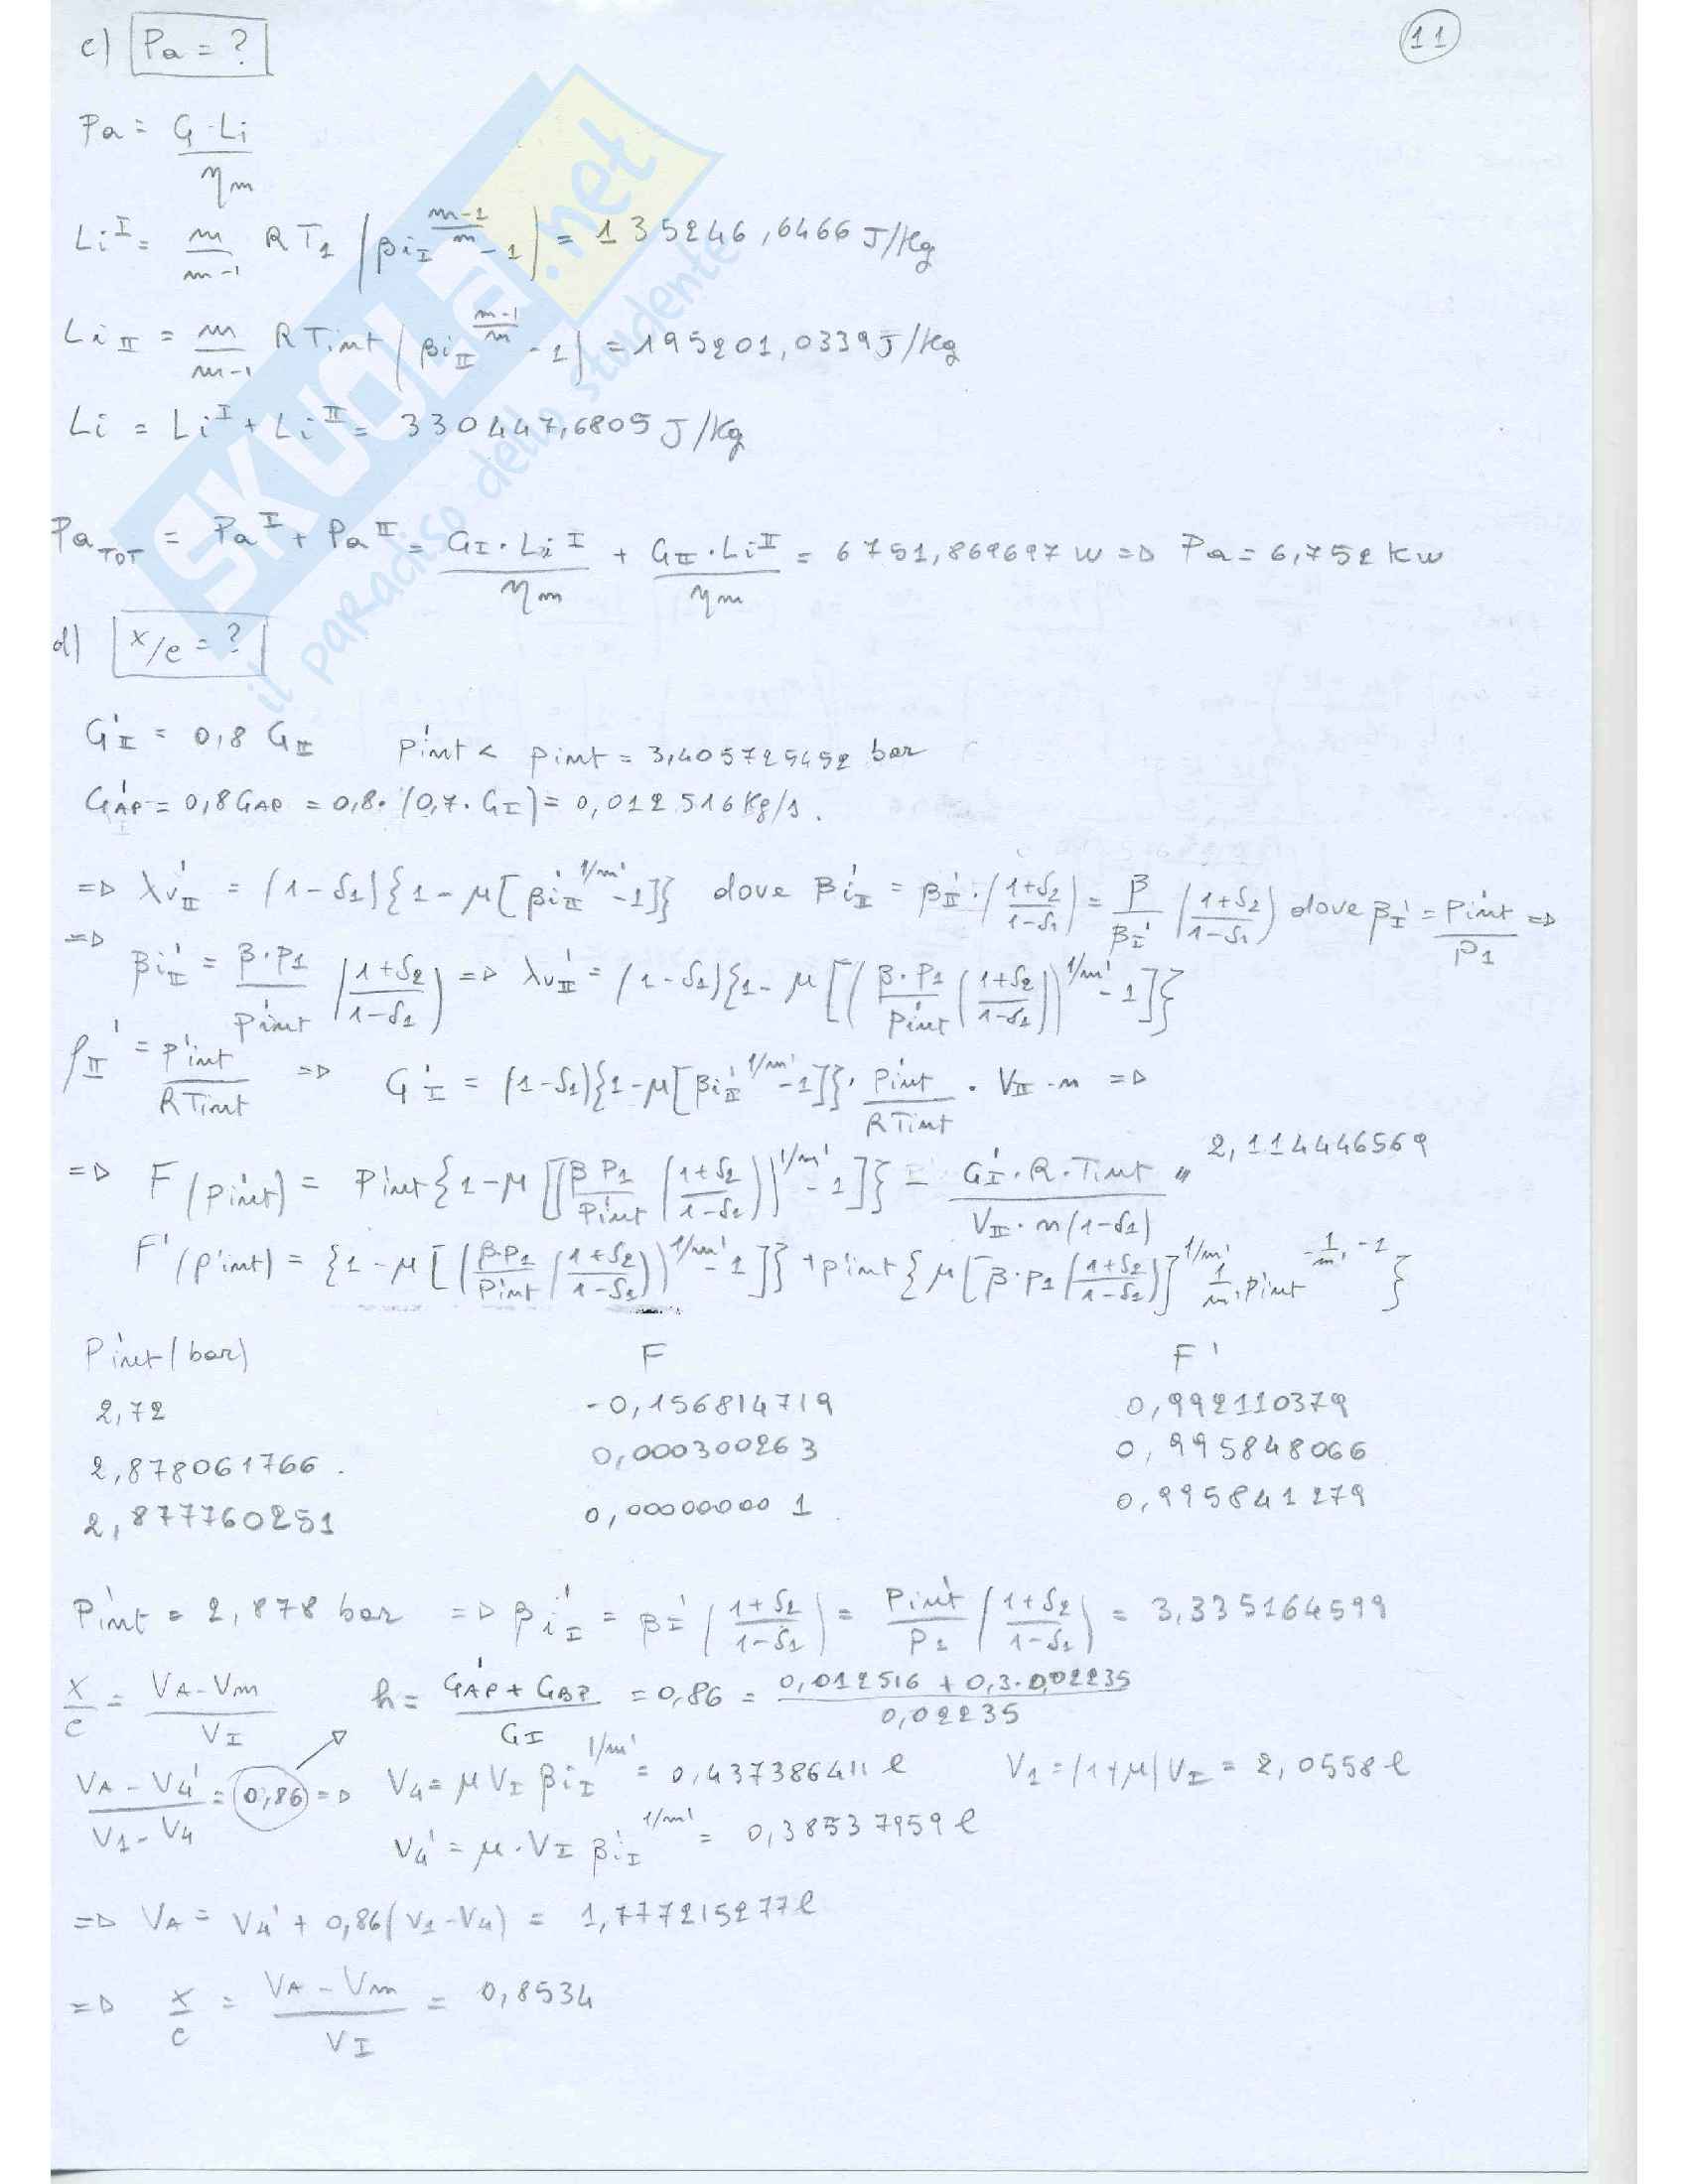 c) Pa = ?
11
Pa = G·Li / ηm
Li^I = m/(m-1) R T1 (βi_I^((m-1)/m) - 1) = 135246,6466 J/Kg
Li_II = m/(m-1) R Tint (βi_II^((m-1)/m) - 1) = 195201,0339 J/Kg
Li = Li^I + Li^II = 330447,6805 J/Kg
Pa_TOT = Pa^I + Pa^II = G_I·Li^I / ηm + G_II·Li^II / ηm = 6751,869697 W => Pa = 6,752 KW
d) x/c = ?
G'_II = 0,8 G_II   p'int < pint = 3,405725452 bar
G'AP = 0,8 GAP = 0,8·(0,7·G_I) = 0,012516 Kg/s.
=> λv'_II = (1-δ1){1-μ[βi'_II^(1/m') -1]} dove βi'_II = β'_II·((1+δ2)/(1-δ1)) = β/β'_I ((1+δ2)/(1-δ1)) dove β'_I = p'int/p1 =>
=> βi'_II = β·p1/p'int ((1+δ2)/(1-δ1)) => λv'_II = (1-δ1){1-μ[(β·p1/p'int ((1+δ2)/(1-δ1)))^(1/m') -1]}
ρ'_II = p'int/RTint => G'_II = (1-δ1){1-μ[βi'_II^(1/m') -1]}· p'int/RTint · V_II·n =>
=> F(p'int) = p'int{1-μ[(β p1/p'int ((1+δ2)/(1-δ1)))^(1/m') -1]} - G'_II·R·Tint / V_II·n(1-δ1) " 2,114446569
F'(p'int) = {1-μ[(β·p1/p'int ((1+δ2)/(1-δ1)))^(1/m') -1]} + p'int{μ[β·p1((1+δ2)/(1-δ1))]^(1/m') 1/m' · p'int^(-1/m' -1)}
P'int (bar)   F   F'
2,72   -0,156814719   0,992110379
2,878061766   0,000300263   0,995848066
2,877760251   0,000000001   0,995841279
P'int = 2,878 bar => βi'_I = β'_I ((1+δ2)/(1-δ1)) = P'int/P1 ((1+δ2)/(1-δ1)) = 3,335164599
x/c = (VA-Vm)/V_I   h = (G'AP + GBP)/G_I = 0,86 = (0,012516 + 0,3·0,02235)/0,02235
(VA-V4')/(V1-V4) = 0,86 => V4 = μ V_I βi_I^(1/m') = 0,437386411 l   V1 = (1+μ)V_I = 2,0558 l
V4' = μ·V_I βi'_I^(1/m') = 0,38537959 l
=> VA = V4' + 0,86(V1-V4) = 1,777215277 l
=> x/c = (VA-Vm)/V_I = 0,8534
SKUOLA.net
il paradiso dello studente